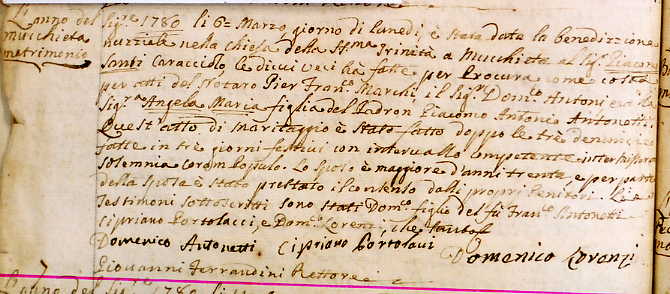 L'anno del
mucchieta
matrimonio
Sig.re 1780 li 6 = Marzo giorno di lunedi, è stata data la benedizzione
nuzziale nella chiesa della SS.ma Trinità a Mucchieta al Sig.r Giacom
Santi Caraccioli, le di cui veci ha fatte per Procura come costa
per atti del Notaro Pier Fran.co Marchi, il Sig.r Dom.co Antoni ed la
Sig.ra Angela Maria figlia del Padron Giacomo Antonio Antonetti.
Quest'atto di maritaggio è stato fatto doppo le trè denuncie
fatte in trè giorni festivi con intervallo competente inter missarum
Solemnia coram Populo. Lo sposo è maggiore d'anni trenta, e per parte
della sposa è stato prestato il consenso dalli propri Genitori. Li
Testimoni sottoscritti sono stati Dom.co figlio del fù Fran.co Antonetti
Cipriano Portolacci, e Dom.co Lorenzi, che
Domenico Antonetti Cipriano Portolacci Domenico Lorenzi
Giovanni Ferrandini Rettore
L'anno del Sig.re 1780 li